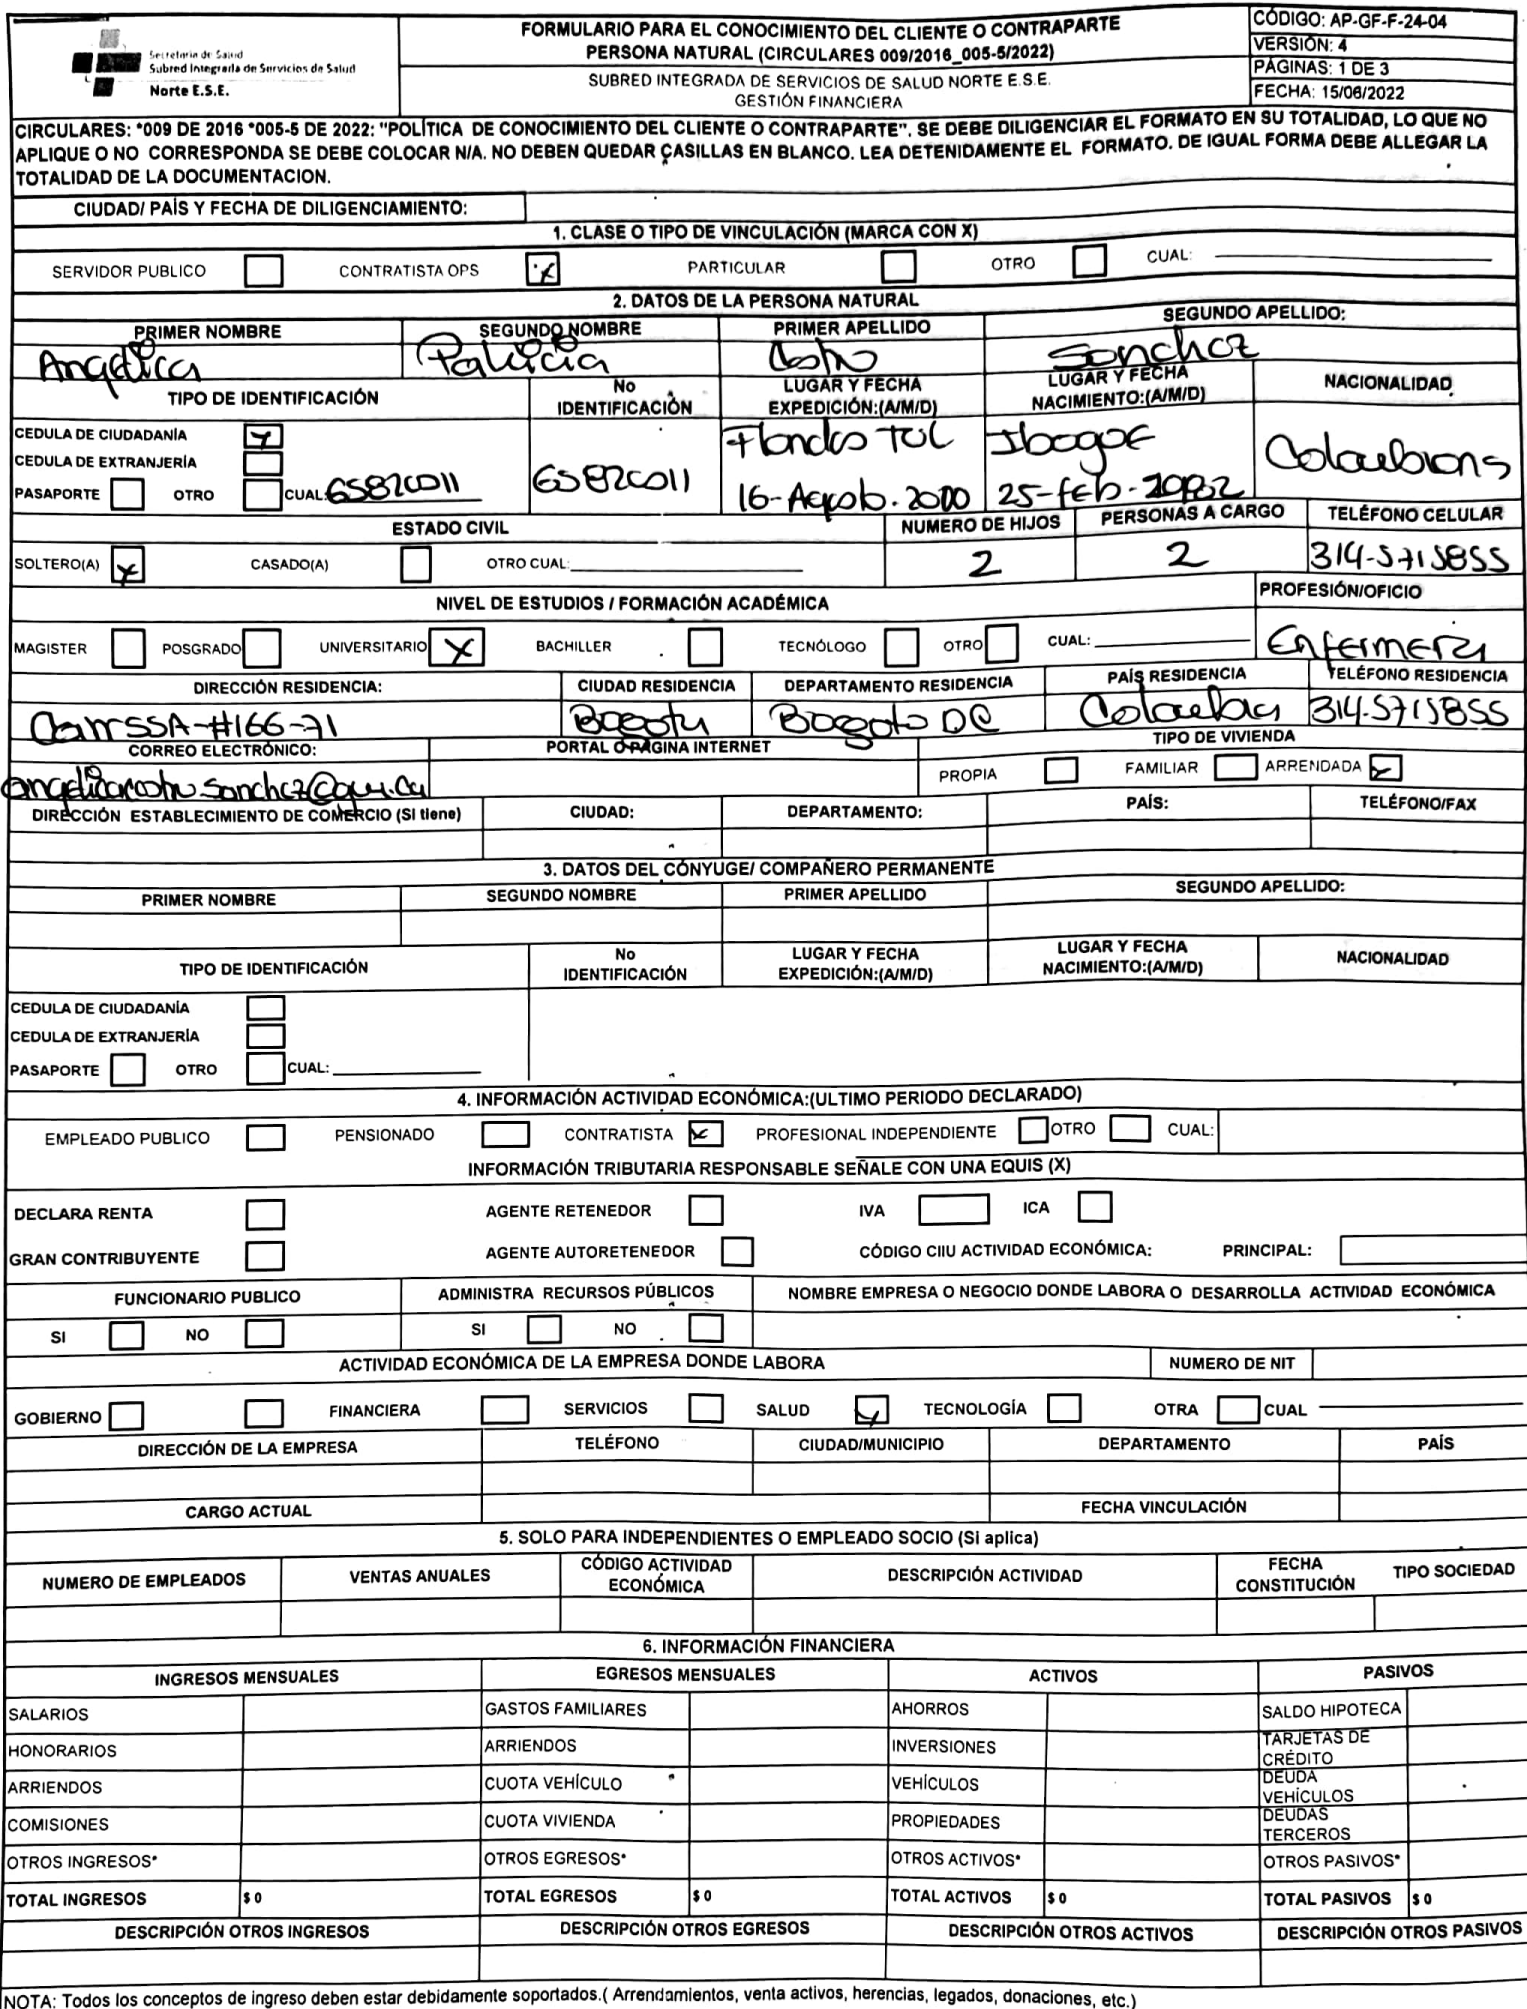 Secretaría de Salud
Subred Integrada de Servicios de Salud
Norte E.S.E.
FORMULARIO PARA EL CONOCIMIENTO DEL CLIENTE O CONTRAPARTE
PERSONA NATURAL (CIRCULARES 009/2016_005-5/2022)
SUBRED INTEGRADA DE SERVICIOS DE SALUD NORTE E.S.E.
GESTIÓN FINANCIERA
CÓDIGO: AP-GF-F-24-04
VERSIÓN: 4
PÁGINAS: 1 DE 3
FECHA: 15/06/2022
CIRCULARES: *009 DE 2016 *005-5 DE 2022: "POLÍTICA DE CONOCIMIENTO DEL CLIENTE O CONTRAPARTE". SE DEBE DILIGENCIAR EL FORMATO EN SU TOTALIDAD, LO QUE NO
APLIQUE O NO CORRESPONDA SE DEBE COLOCAR N/A. NO DEBEN QUEDAR CASILLAS EN BLANCO. LEA DETENIDAMENTE EL FORMATO. DE IGUAL FORMA DEBE ALLEGAR LA
TOTALIDAD DE LA DOCUMENTACION.
CIUDAD/ PAÍS Y FECHA DE DILIGENCIAMIENTO:
1. CLASE O TIPO DE VINCULACIÓN (MARCA CON X)
SERVIDOR PUBLICO CONTRATISTA OPS X PARTICULAR OTRO CUAL:
2. DATOS DE LA PERSONA NATURAL
PRIMER NOMBRE SEGUNDO NOMBRE PRIMER APELLIDO SEGUNDO APELLIDO:
Angelica Patricia Castro Sanchez
TIPO DE IDENTIFICACIÓN No IDENTIFICACIÓN LUGAR Y FECHA EXPEDICIÓN:(A/M/D) LUGAR Y FECHA NACIMIENTO:(A/M/D) NACIONALIDAD
CEDULA DE CIUDADANÍA X Flandes TOL Ibague Colombiana
CEDULA DE EXTRANJERÍA
PASAPORTE OTRO CUAL: 65820011 65820011 16-Agosto-2000 25-feb-1982
ESTADO CIVIL NUMERO DE HIJOS PERSONAS A CARGO TELÉFONO CELULAR
SOLTERO(A) X CASADO(A) OTRO CUAL: 2 2 314-5715855
NIVEL DE ESTUDIOS / FORMACIÓN ACADÉMICA PROFESIÓN/OFICIO
MAGISTER POSGRADO UNIVERSITARIO X BACHILLER TECNÓLOGO OTRO CUAL: Enfermera
DIRECCIÓN RESIDENCIA: CIUDAD RESIDENCIA DEPARTAMENTO RESIDENCIA PAÍS RESIDENCIA TELÉFONO RESIDENCIA
#166-71 Bogota Bogota DC Colombia 314-5715855
CORREO ELECTRÓNICO: PORTAL O PAGINA INTERNET TIPO DE VIVIENDA
PROPIA FAMILIAR ARRENDADA X
DIRECCIÓN ESTABLECIMIENTO DE COMERCIO (Si tiene) CIUDAD: DEPARTAMENTO: PAÍS: TELÉFONO/FAX
3. DATOS DEL CÓNYUGE/ COMPAÑERO PERMANENTE
PRIMER NOMBRE SEGUNDO NOMBRE PRIMER APELLIDO SEGUNDO APELLIDO:
TIPO DE IDENTIFICACIÓN No IDENTIFICACIÓN LUGAR Y FECHA EXPEDICIÓN:(A/M/D) LUGAR Y FECHA NACIMIENTO:(A/M/D) NACIONALIDAD
CEDULA DE CIUDADANÍA
CEDULA DE EXTRANJERÍA
PASAPORTE OTRO CUAL:
4. INFORMACIÓN ACTIVIDAD ECONÓMICA:(ULTIMO PERIODO DECLARADO)
EMPLEADO PUBLICO PENSIONADO CONTRATISTA X PROFESIONAL INDEPENDIENTE OTRO CUAL:
INFORMACIÓN TRIBUTARIA RESPONSABLE SEÑALE CON UNA EQUIS (X)
DECLARA RENTA AGENTE RETENEDOR IVA ICA
GRAN CONTRIBUYENTE AGENTE AUTORETENEDOR CÓDIGO CIIU ACTIVIDAD ECONÓMICA: PRINCIPAL:
FUNCIONARIO PUBLICO ADMINISTRA RECURSOS PÚBLICOS NOMBRE EMPRESA O NEGOCIO DONDE LABORA O DESARROLLA ACTIVIDAD ECONÓMICA
SI NO SI NO
ACTIVIDAD ECONÓMICA DE LA EMPRESA DONDE LABORA NUMERO DE NIT
GOBIERNO FINANCIERA SERVICIOS SALUD X TECNOLOGÍA OTRA CUAL
DIRECCIÓN DE LA EMPRESA TELÉFONO CIUDAD/MUNICIPIO DEPARTAMENTO PAÍS
CARGO ACTUAL FECHA VINCULACIÓN
5. SOLO PARA INDEPENDIENTES O EMPLEADO SOCIO (Si aplica)
NUMERO DE EMPLEADOS VENTAS ANUALES CÓDIGO ACTIVIDAD ECONÓMICA DESCRIPCIÓN ACTIVIDAD FECHA CONSTITUCIÓN TIPO SOCIEDAD
6. INFORMACIÓN FINANCIERA
INGRESOS MENSUALES EGRESOS MENSUALES ACTIVOS PASIVOS
SALARIOS GASTOS FAMILIARES AHORROS SALDO HIPOTECA
HONORARIOS ARRIENDOS INVERSIONES TARJETAS DE CRÉDITO
ARRIENDOS CUOTA VEHÍCULO VEHÍCULOS DEUDA VEHÍCULOS
COMISIONES CUOTA VIVIENDA PROPIEDADES DEUDAS TERCEROS
OTROS INGRESOS* OTROS EGRESOS* OTROS ACTIVOS* OTROS PASIVOS*
TOTAL INGRESOS $ 0 TOTAL EGRESOS $ 0 TOTAL ACTIVOS $ 0 TOTAL PASIVOS $ 0
DESCRIPCIÓN OTROS INGRESOS DESCRIPCIÓN OTROS EGRESOS DESCRIPCIÓN OTROS ACTIVOS DESCRIPCIÓN OTROS PASIVOS
NOTA: Todos los conceptos de ingreso deben estar debidamente soportados.( Arrendamientos, venta activos, herencias, legados, donaciones, etc.)